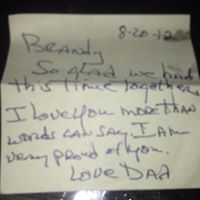 8-20-12
Brandy
So glad we had
this time together.
I love you more than
words can say. I am
very proud of you.
Love Dad